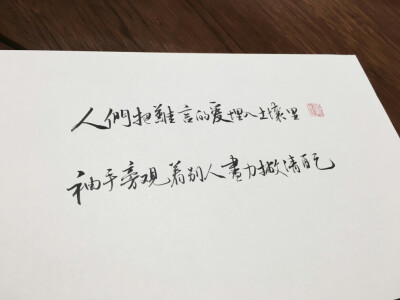 人們把難言的爱埋入土壤里
袖手旁觀着别人盡力撇清自己